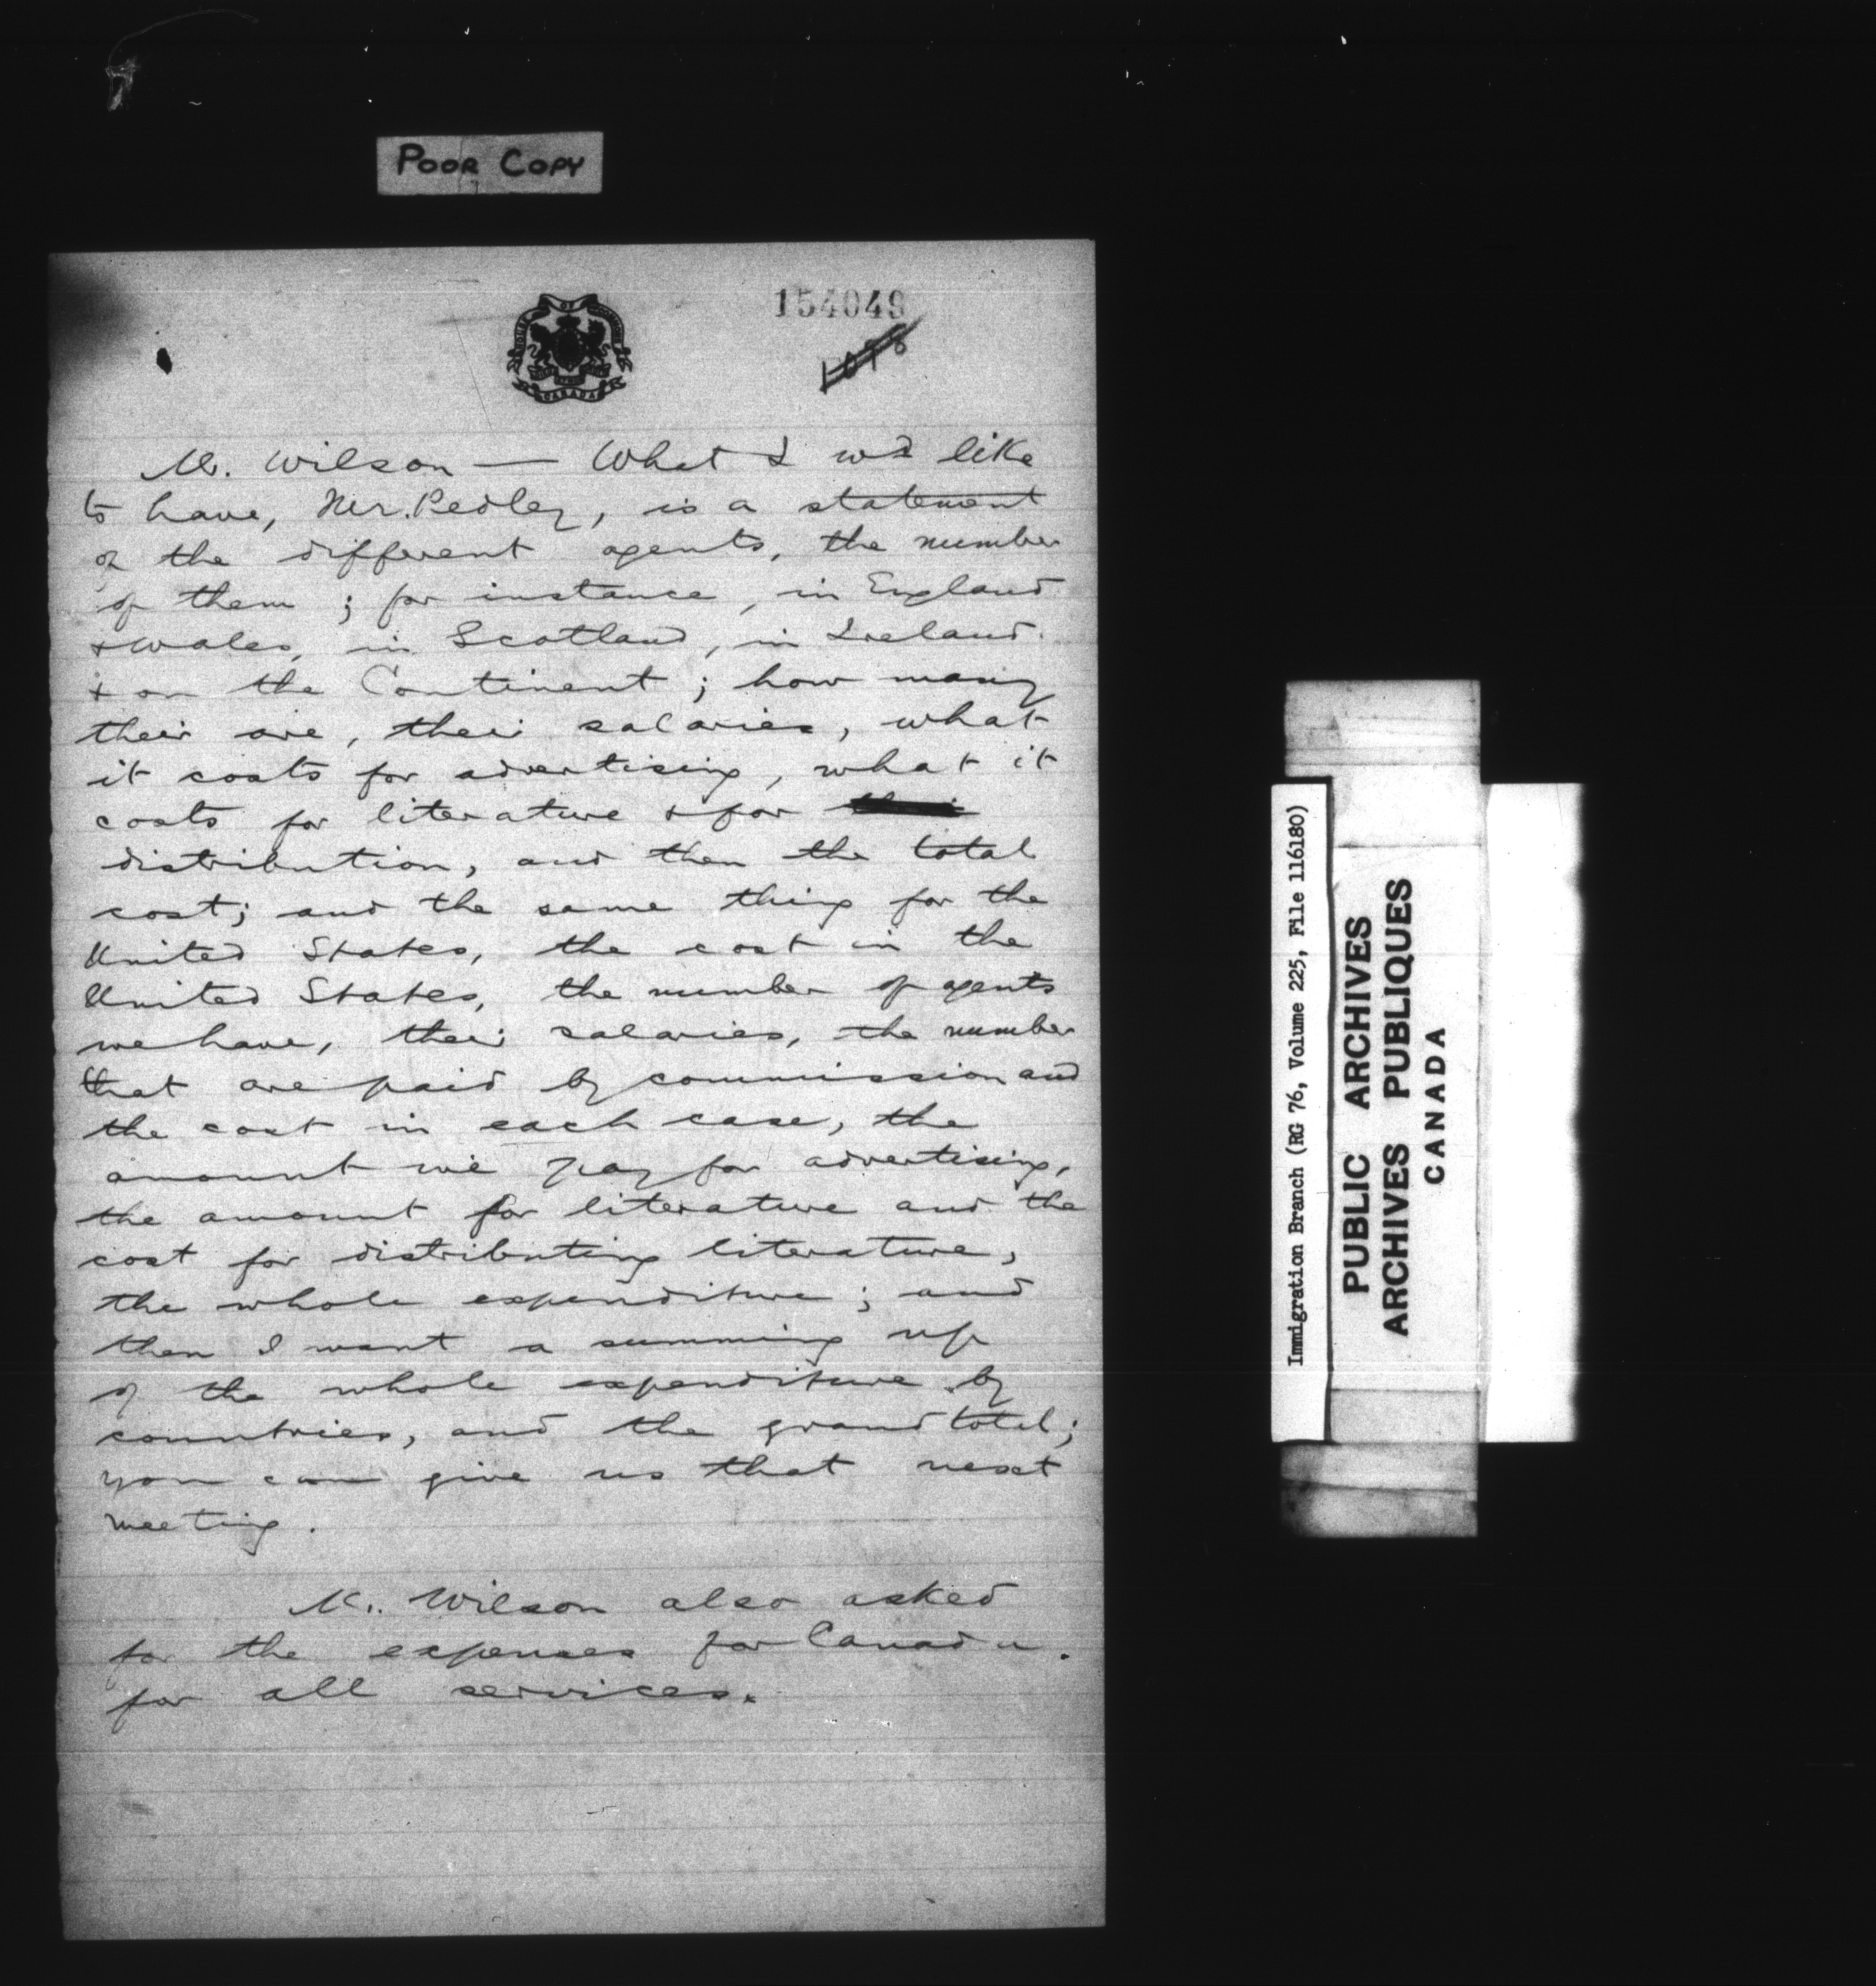 POOR COPY
154049
HOUSE OF COMMONS
CANADA
Mr. Wilson — What I wd like
to have, Mr. Pedley, is a statement
of the different agents, the number
of them ; for instance, in England
& Wales, in Scotland, in Ireland.
& on the Continent ; how many
their are, their salaries, what
it costs for advertising, what it
costs for literature & for
distribution, and then the total
cost; and the same thing for the
United States, the cost in the
United States, the number of agents
we have, their salaries, the number
that are paid by commission and
the cost in each case, the
amount we pay for advertising,
the amount for literature and the
cost for distributing literature,
the whole expenditure ; and
then I want a summing up
of the whole expenditure by
countries, and the grand total;
you can give us that next
meeting.
Mr. Wilson also asked
for the expenses for Canada.
for all services.
Immigration Branch (RG 76, Volume 225, File 116180)
PUBLIC ARCHIVES
ARCHIVES PUBLIQUES
CANADA